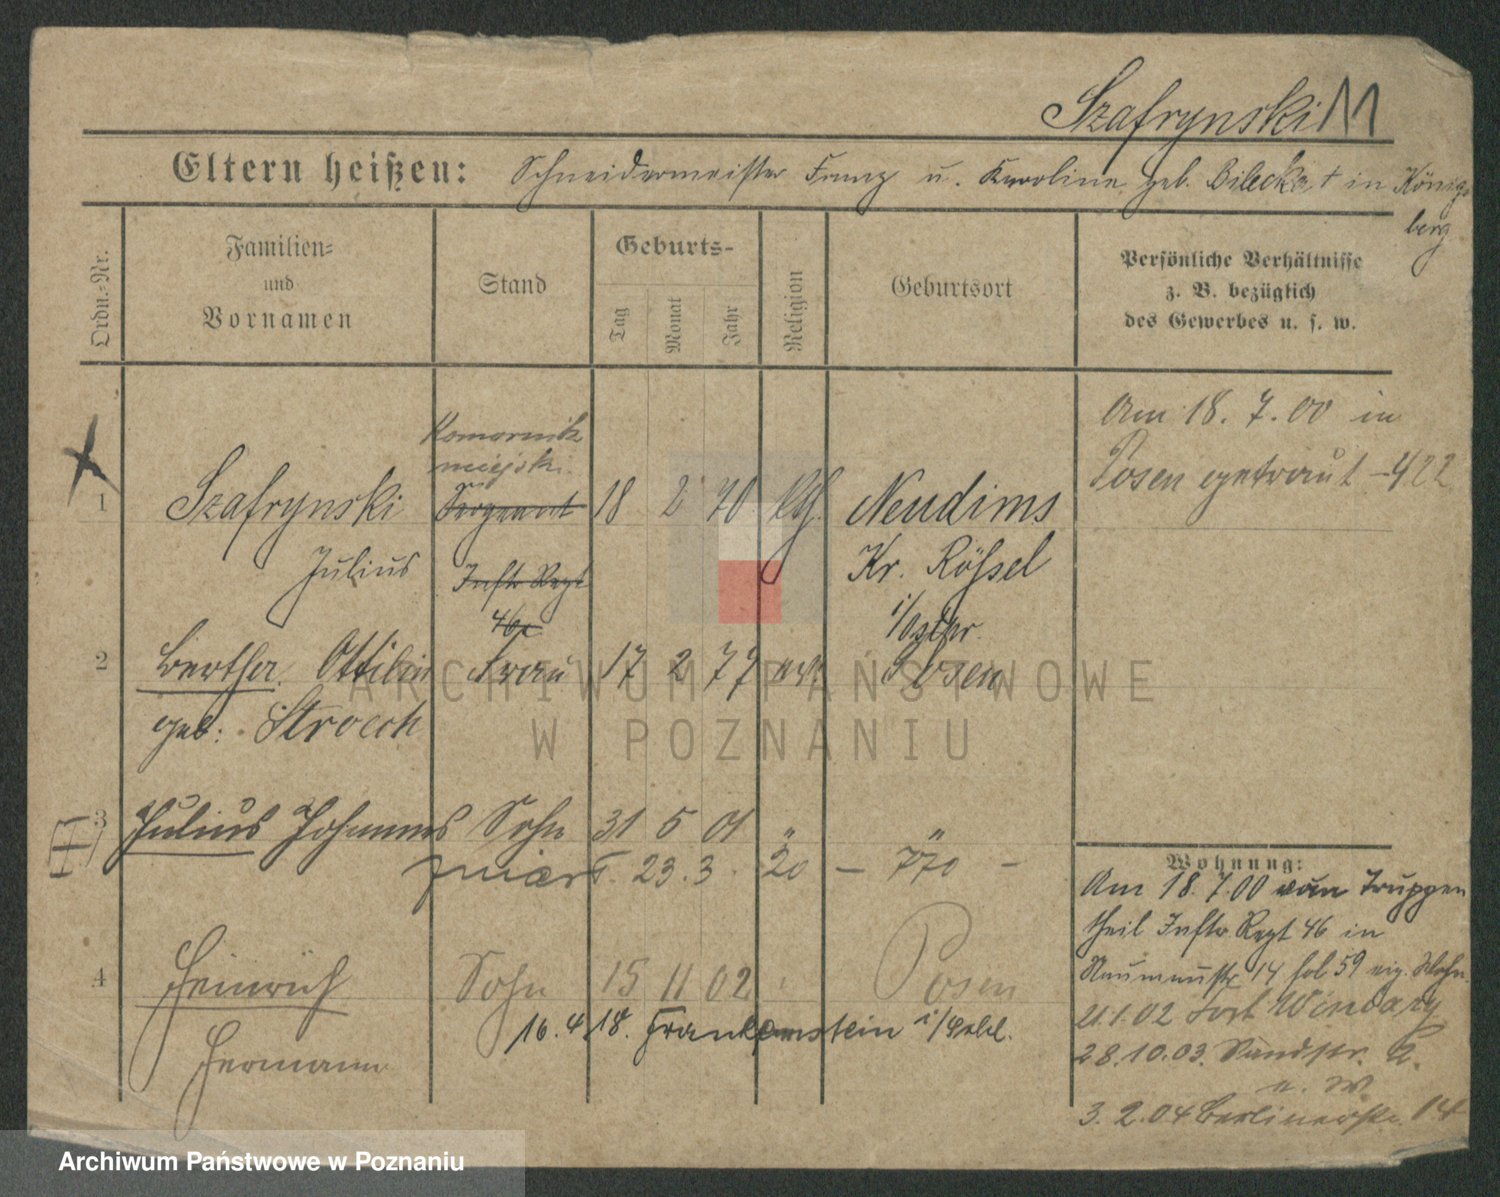 Szafrynski
Eltern heißen: Schneidermeister Franz u. Karoline geb. Bilecka † in Königs
berg
Ordn.-Nr.
Familien-
und
Vornamen
Stand
Geburts-
Tag
Monat
Jahr
Religion
Geburtsort
Persönliche Verhältnisse
z. B. bezüglich
des Gewerbes u. s. w.
1
Szafrynski
Julius
Komornik
miejski
Sergeant
Inftr Regt
46
18 2 70 kth.
Neudims
Kr. Rößsel
i/Ostpr.
Am 18. 7. 00 in
Posen getraut - 422
2 Bertha Ottilie Frau 17 2 77 ev. Posen
geb. Stroech
3 Julius Johannes Sohn 31 5 01 " "
23. 3. 20 — 770 —
4 Heinrich Sohn 15 11 02 Posen
16. 4. 18. Frankenstein i/Schl.
Hermann
Wohnung:
Am 18. 7. 00 vom Truppen
theil Inftr Regt 46 in
Naumannstr 14 fol 59 eig. Wohn.
21.1.02 Fort Winiary
28.10.03. Sandstr. 2.
3. 2. 04 Berlinerstr. 14
ARCHIWUM PAŃSTWOWE
W POZNANIU
Archiwum Państwowe w Poznaniu